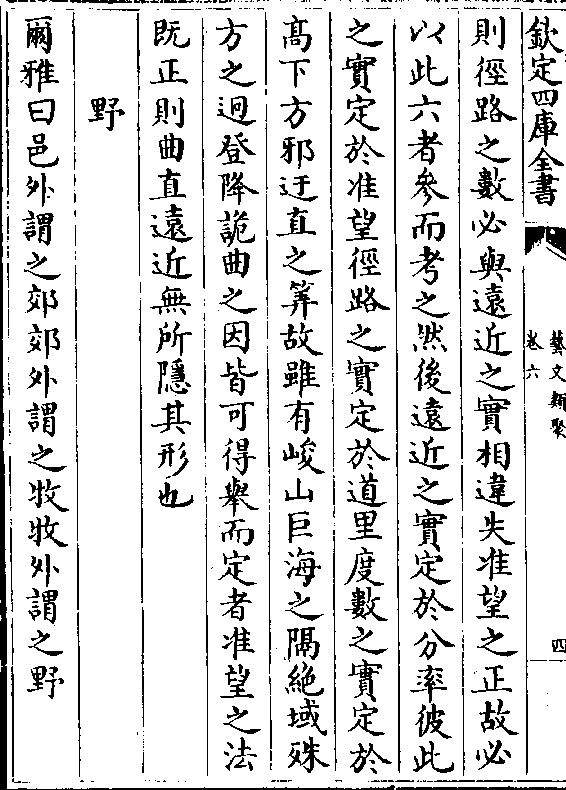 欽定四庫全書
藝文類聚
卷六
四
則徑路之數必與遠近之實相違失准望之正故必
以此六者參而考之然後遠近之實定於分率彼此
之實定於准望徑路之實定於道里度數之實定於
髙下方邪迂直之筭故雖有峻山巨海之隔絶域殊
方之迥登降詭曲之因皆可得舉而定者准望之法
既正則曲直遠近無所隱其形也
野
爾雅曰邑外謂之郊郊外謂之牧牧外謂之野